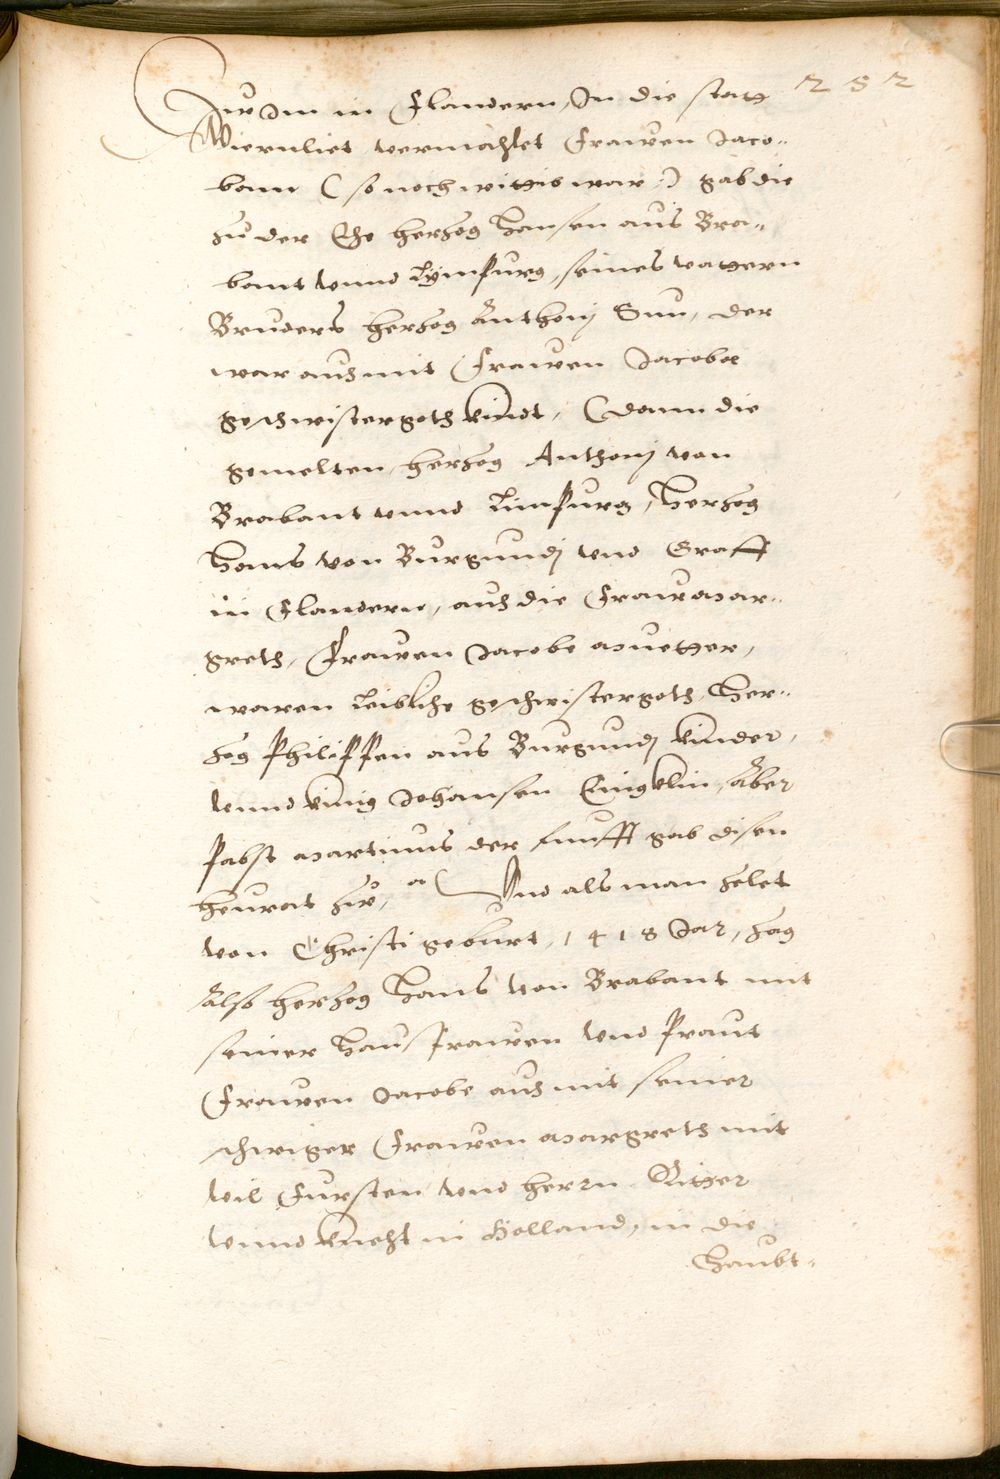 252
im in Flandern, In die statt
Wiernliet vermählet Frawen Jaco„
bam (so noch wittib war:) gab die
zu der Ehe herzog Hansen aus Bra„
bant vnnd Lymspurg, seines vattern
Bruders herzog Anthonij Sun, der
war auch mit Frawen Jacobe
geschwistergeth kindt, (dann die
gemelten, herzog Anthonij von
Brabant vnnd Limspurg, Herzog
Hanns von Burgundj vnd Graff
in Flandern, auch die Fraw Mar„
greth, Frawen Jacobe muetter,
waren leibliche geschwistergeth, Her„
zog Philippen aus Burgundj kinder,
vnnd künig Johansen Eingklin, Aber
Pabst Martinus der funfft gab disen
heurat zu, Vnd als man zelet
von Christi geburt, 1418 Jar, zog
Also herzog Hanns von Brabant mit
seiner Hausfrawen vnd Praut
Frawen Jacobe auch mit seiner
schwiger Frawen Margreth mit
vil Fursten vnd herrn Ritter
vnnd knecht in Holland, in die
Haubt„